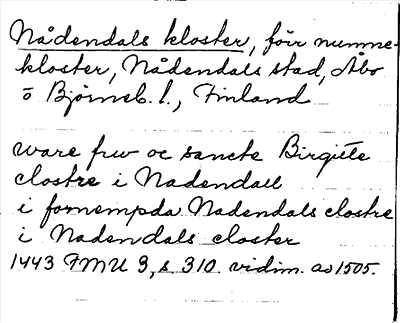 Nådendals kloster, förr nunne-
kloster, Nådendals stad, Åbo
o Björneb. l., Finland
ware frw oc sancte Birgitte
clostre i Nadendall
i fornempda Nadendals clostre
i Nadendals closter
1443 FMU 3, s. 310. vidim. av 1505.